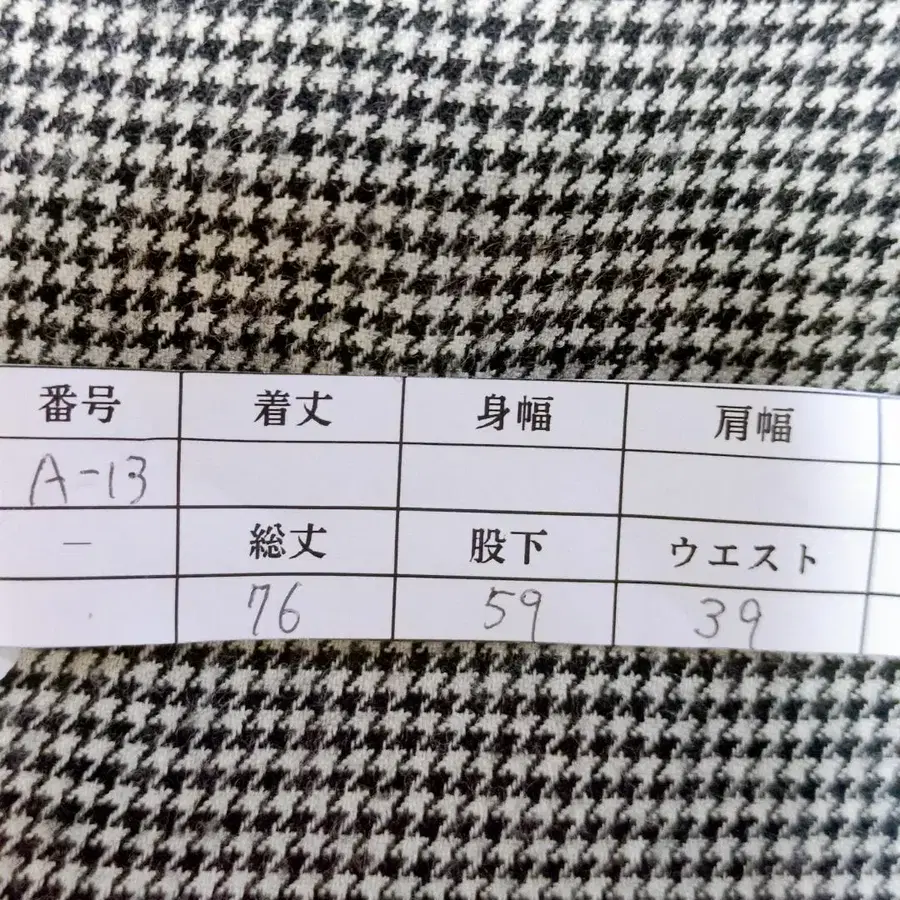 番号 着丈 身幅 肩幅
A-13
— 総丈 股下 ウエスト
76 59 39